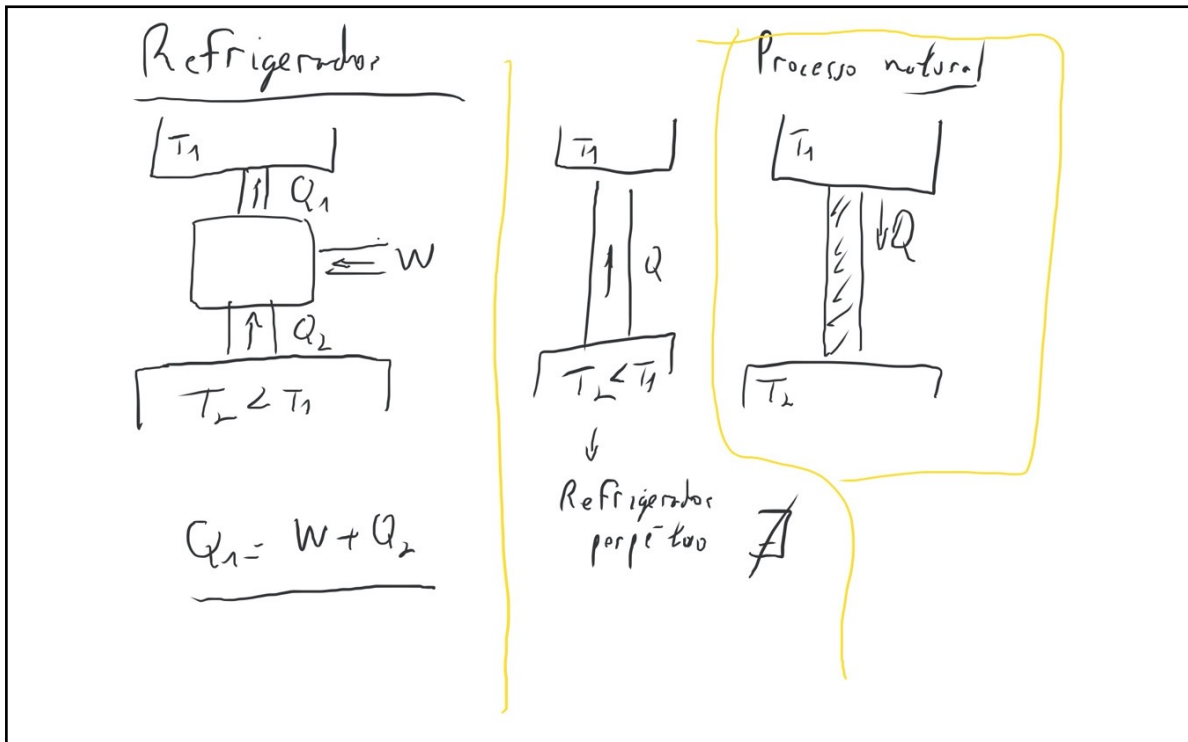 Refrigerador
T1
Q1
W
Q2
T2 < T1
Q1 = W + Q2
T1
Q
T2 < T1
↓
Refrigerador
perpétuo ∄
Processo natural
T1
↓Q
T2